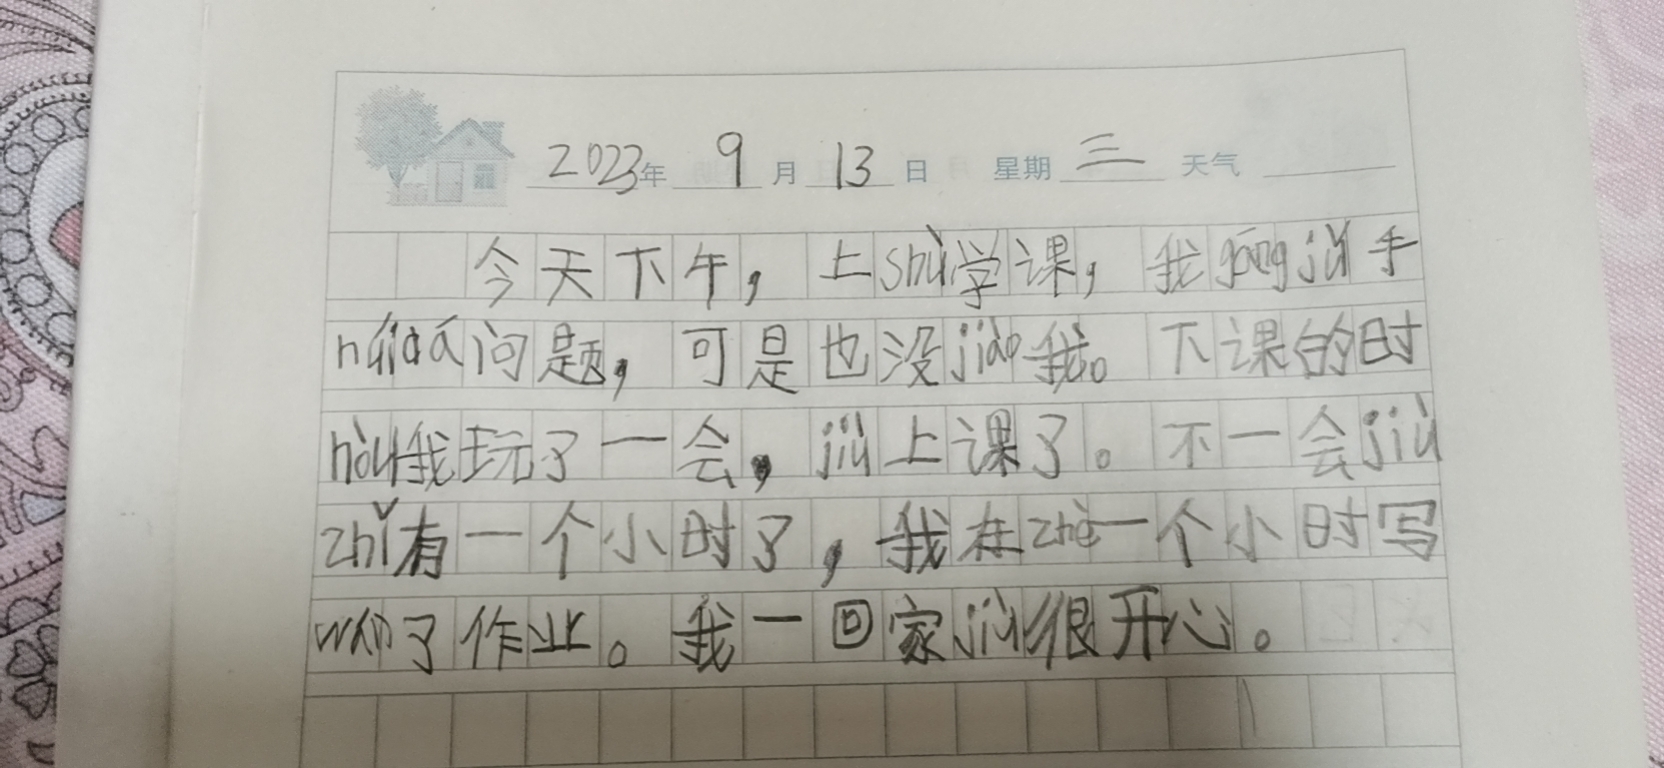 2023年 9月 13日 星期 三 天气
今天下午，上shù学课，我gāng jiù手
huídá问题，可是也没jiào我。下课的时
hòu我玩了一会，jiù上课了。不一会jiù
zhǐ有一个小时了，我在zhè一个小时写
wán了作业。我一回家jiù很开心。